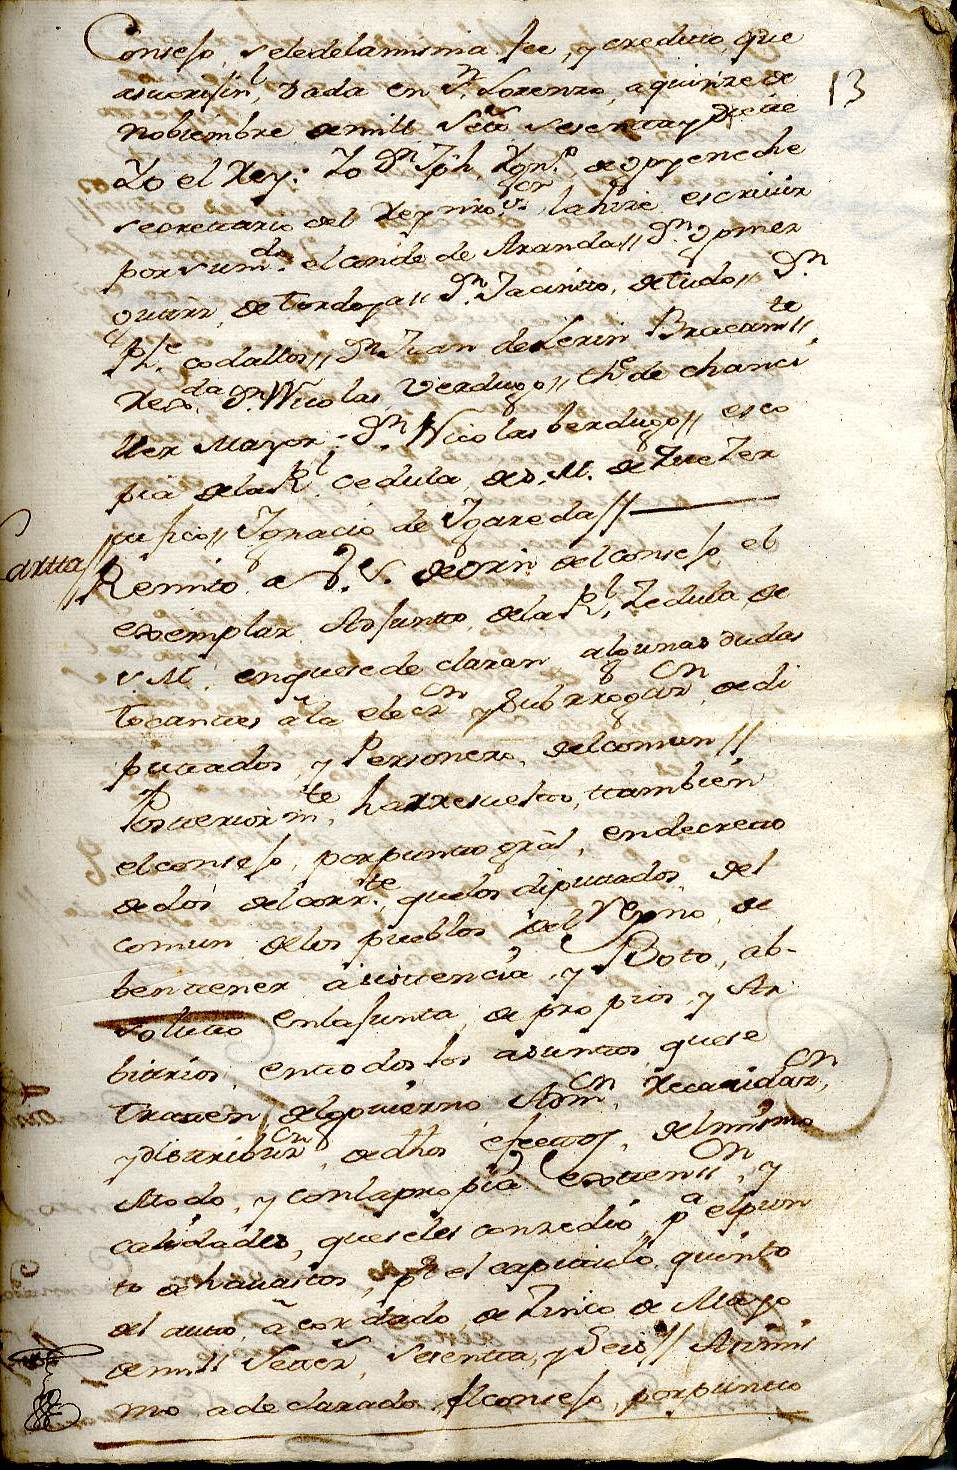 13
Consejo, sele dela misma fee, y credito, que
asuorixinl, Dada en Sn. Lorenzo, a quinze de
Nobiembre de mill Setts. Sesentta y Siette
Yo el Rey: Yo Dn. Jph. Ygno. de Goyeneche
Secrettario del Rey nro. Sor. la hize escriuir
por su mdo. el conde de Aranda// Dn. Gomez
Guttrrz. de tordoya// Dn. Jacintto, de tudo// Dn.
Phe. codallos// Dn. Juan de Lerin Bracamte//
Rexda. Dn. Nicolas Verdugo// the. de chanci
ller Mayor: Dn. Nicolas berdugo// es co
pia de la Rl. cedula, de S. M. de que Zer
ttifico// Ygnacio de Ygareda//
Cartta//
Remito a V. S. de orn. del consejo el
exemplar Adjuntto, de la Rl. Zedula, de
S. M. en que se de claran, algunas dudas
tocantes a la eleccn. y Subrrogazn. de di
puttados, y Personero, del comun//
Posteriormte. ha rresueltto, ttambien
el consejo, por puntto gral, en decretto
de dos del corrte. que los diputtados, del
comun de los pueblos del Reyno, de
ben ttener asisttencia, y Botto, ab-
solutto en la Junta, de propios, y Ar
bitrios, en ttodos los asunttos que se
tratten, del govierno Admcn. Recaudazn.,
y distribucn. de dhos efecttos, del mismo
Modo, y con la propia exttensn., y
calidades, que se les conzedio, pa. el pun
to de havastos, por el capittulo, quinto
del autto, acordado, de Zinco de Mayo
de mill Settez. Sesentta, y Seis// Asimis
mo a de clarado el consejo, por puntto